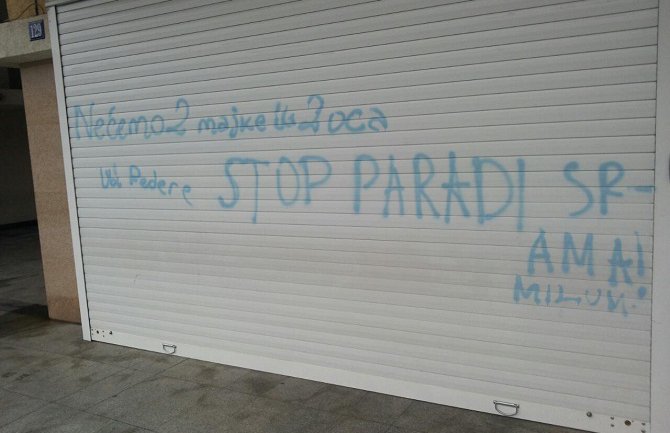 129
Nećemo 2 majke ili 2 oca
Ubi Pedere STOP PARADI SR-
AMA!